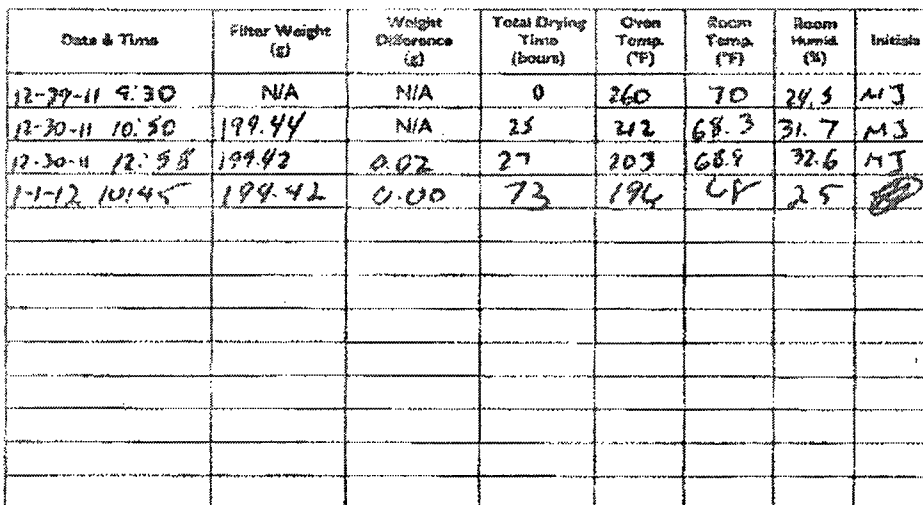 Date & Time Filter Weight (g) Weight Difference (g) Total Drying Time (hours) Oven Temp. (°F) Room Temp. (°F) Room Humid. (%) Initials
12-29-11 9:30 N/A N/A 0 260 70 24.5 MJ
12-30-11 10:50 199.44 N/A 25 212 68.3 31.7 MJ
12-30-11 12:58 199.42 0.02 27 203 68.9 32.6 MJ
1-1-12 10:45 199.42 0.00 73 196 68 25